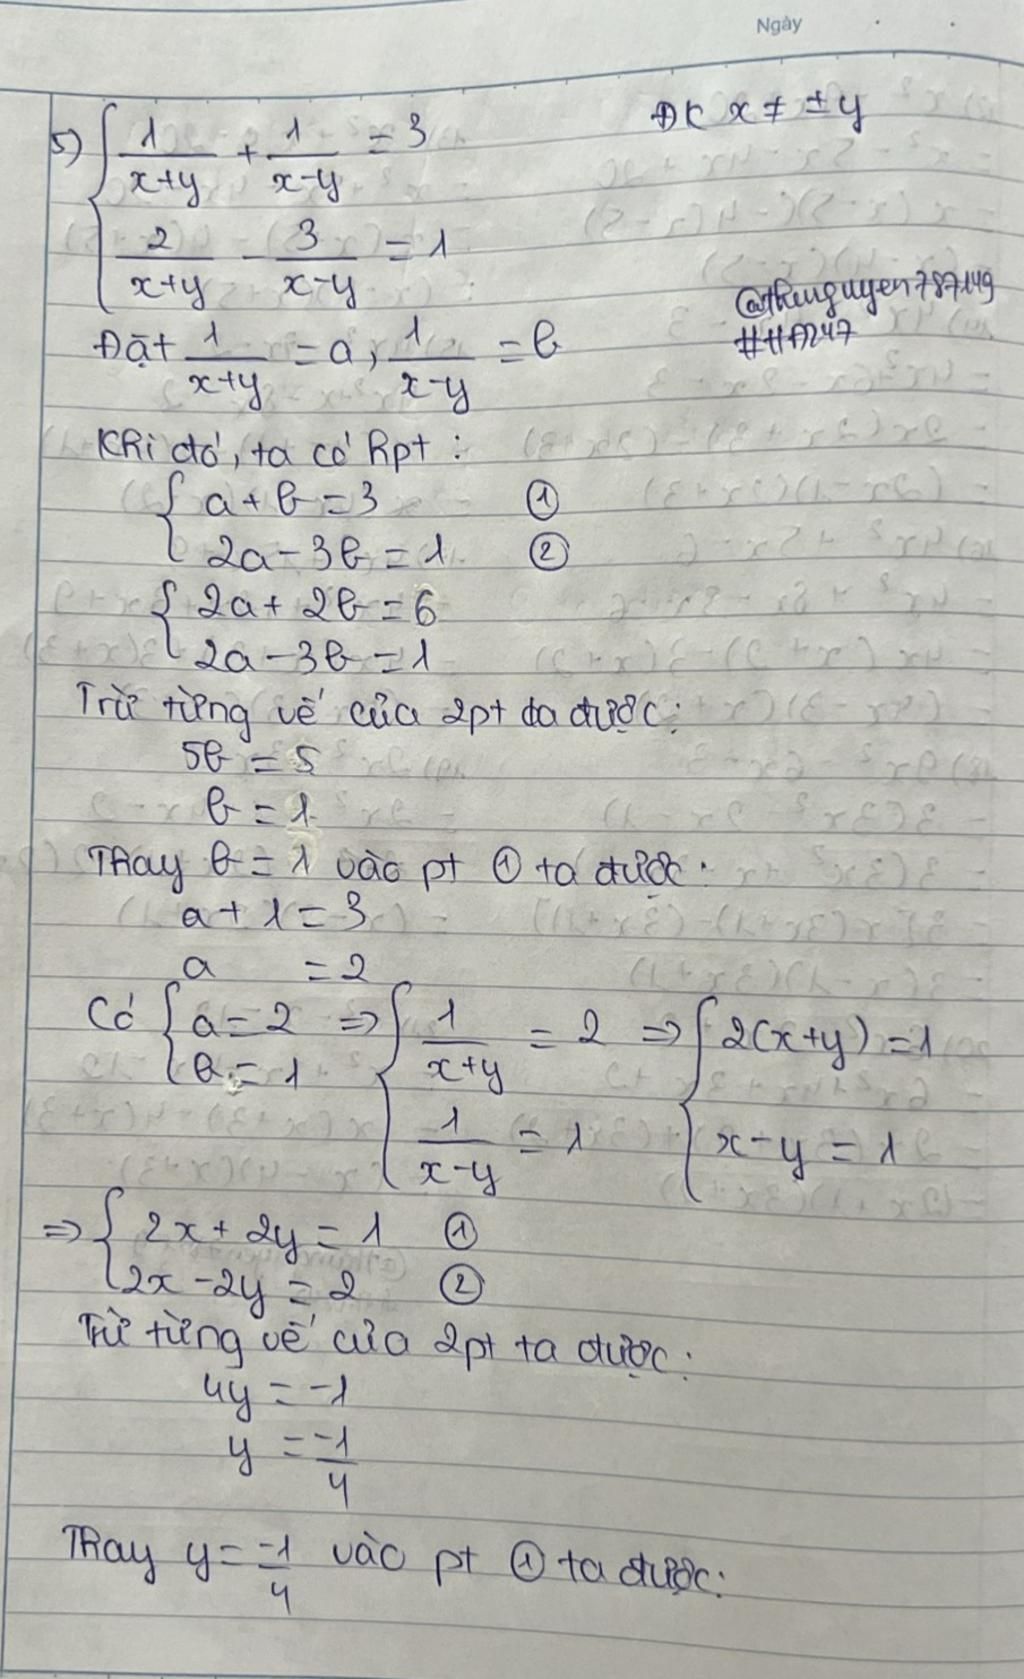 Ngày
5) { 1/(x+y) + 1/(x-y) = 3    ĐK x ≠ ±y
{ 2/(x+y) - 3/(x-y) = 1
@thunguyen787149
##HA247
Đặt 1/(x+y) = a, 1/(x-y) = b
Khi đó, ta có hpt :
{ a + b = 3 ①
{ 2a - 3b = 1 ②
{ 2a + 2b = 6
{ 2a - 3b = 1
Trừ từng vế của 2pt ta được:
5b = 5
b = 1
Thay b = 1 vào pt ① ta được:
a + 1 = 3
a = 2
Có { a = 2 => { 1/(x+y) = 2 => { 2(x+y) = 1
{ b = 1 { 1/(x-y) = 1 { x-y = 1
=> { 2x + 2y = 1 ①
{ 2x - 2y = 2 ②
Trừ từng vế của 2pt ta được:
4y = -1
y = -1/4
Thay y = -1/4 vào pt ① ta được: